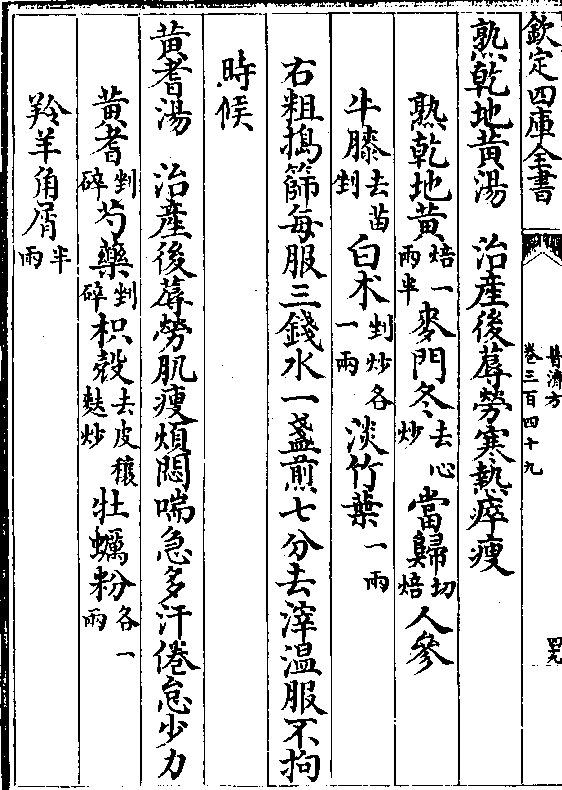 欽定四庫全書
普濟方
卷三百四十九
四九
熟乾地黃湯　治產後蓐勞寒熱瘁瘦
熟乾地黃焙一兩半麥門冬去心炒當歸切焙人參
牛膝去苗剉白朮剉炒各一兩淡竹葉一兩
右粗搗篩每服三錢水一盞煎七分去滓溫服不拘
時候
黃耆湯　治產後蓐勞肌瘦煩悶喘急多汗倦怠少力
黃耆剉碎芍藥剉碎枳殼去皮穰麩炒牡蠣粉各一兩
羚羊角屑半兩